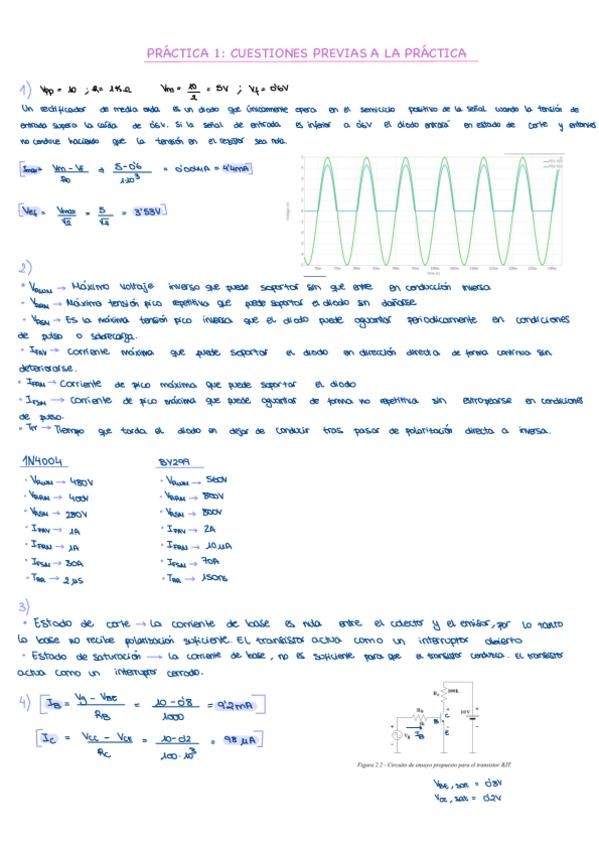 PRÁCTICA 1: CUESTIONES PREVIAS A LA PRÁCTICA
1) Vpp = 10 ; R = 1KΩ Vm = 10/2 = 5V ; Vf = 0'6V
Un rectificador de media onda es un diodo que únicamente opera en el semiciclo positivo de la señal cuando la tensión de
entrada supera la caída de 0'6V. Si la señal de entrada es inferior a 0'6V el diodo entrará en estado de corte y entonces
no conduce haciendo que la tensión en el resistor sea nula.
Imax = Vm - Vf / → 5 - 0'6 / 1·10³ = 0'0044A = 4'4mA
Vef = Vmax/√2 = 5/√2 = 3'53V
2)
• VRWM → Máximo voltaje inverso que puede soportar sin que entre en conducción inversa
• VRRM → Máxima tensión pico repetitiva que puede soportar el diodo sin dañarse
• VRSM → Es la máxima tensión pico inversa que el diodo puede aguantar periodicamente en condiciones
de pulso o sobrecarga.
• IFAV → Corriente máxima que puede soportar el diodo en dirección directa de forma continua sin
deteriorarse.
• IFRM → Corriente de pico máxima que puede soportar el diodo
• IFSM → Corriente de pico máxima que puede aguantar de forma no repetitiva sin estropearse en condiciones
de pulso.
• Trr → Tiempo que tarda el diodo en dejar de conducir tras pasar de polarización directa a inversa.
1N4004 BY299
• VRWM → 480V • VRWM → 560V
• VRRM → 400V • VRRM → 800V
• VRSM → 280V • VRSM → 800V
• IFAV → 1A • IFAV → 2A
• IFRM → 1A • IFRM → 10µA
• IFSM → 30A • IFSM → 70A
• TRR → 2µS • TRR → 150ns
3)
• Estado de corte → La corriente de base es nula entre el colector y el emisor, por lo tanto
la base no recibe polarización suficiente. El transistor actua como un interruptor abierto
• Estado de saturación → la corriente de base, no es suficiente para que el transistor conduzca. El transistor
actua como un interruptor cerrado.
4) IB = Vg - VBE / RB = 10 - 0'8 / 1000 = 9'2mA
IC = VCC - VCE / RC = 10 - 0'2 / 100·10³ = 98 µA
Rc 100k
Rb
1k
10 V
Vg
IB
B
C
E
Figura 2.2 - Circuito de ensayo propuesto para el transistor BJT.
VBE, sat = 0'8V
VCE, sat = 0.2V